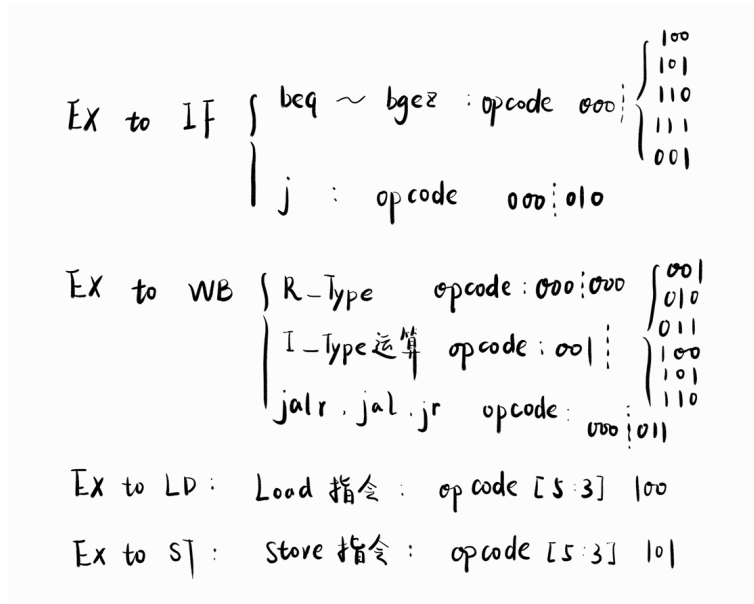 EX to IF { beq ~ bgez : opcode 000 { 100
101
110
111
001
j : opcode 000 010
EX to WB { R_Type opcode : 000 000
I_Type运算 opcode : 001 { 001
010
011
100
101
110
jalr . jal . jr opcode : 000 011
Ex to LD : Load 指令 : opcode [5:3] 100
Ex to ST : Store 指令 : opcode [5:3] 101